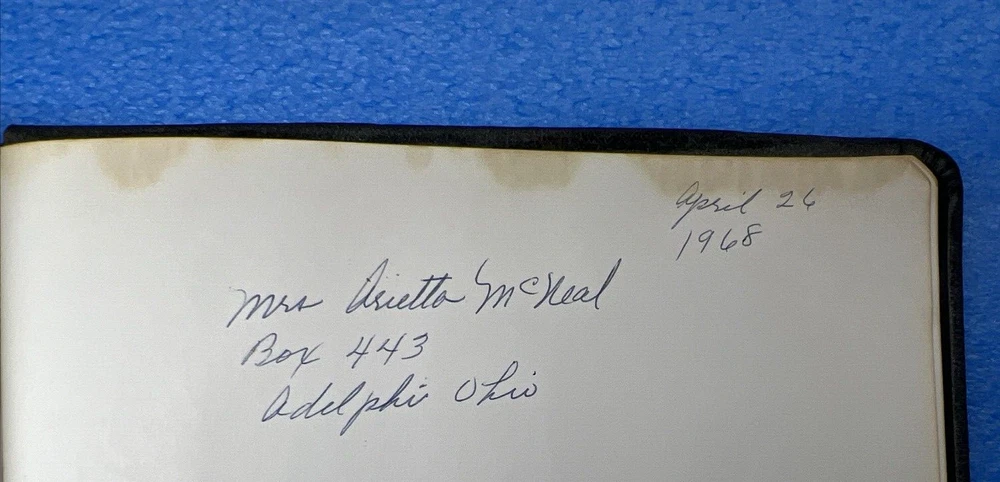 April 26
1968
Mrs Arietta McNeal
Box 443
Adelphi Ohio